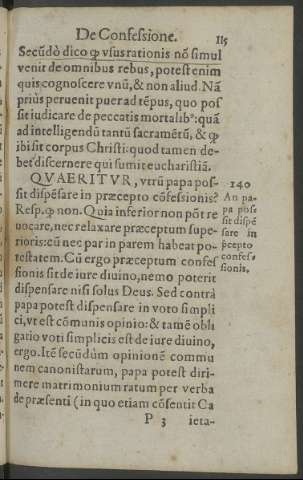 De Confessione. 115
Secũdò dico ꝙ vsus rationis nõ simul
venit de omnibus rebus, potest enim
quis cognoscere vnũ, & non aliud. Nã
priùs peruenit puer ad tẽpus, quo pos
sit iudicare de peccatis mortalib⁹: quã
ad intelligendũ tantũ sacramẽtũ, & ꝙ
ibi sit corpus Christi: quod tamen de-
bet discernere qui sumit eucharistiã.
QVAERITVR, vtrũ papa pos-
sit dispẽsare in præcepto cõfessionis?
Resp. ꝙ non. Quia inferior non põt re
uocare, nec relaxare præceptum supe-
rioris: cũ nec par in parem habeat po-
testatem. Cũ ergo præceptum confes
sionis sit de iure diuino, nemo poterit
dispensare nisi solus Deus. Sed contrà
papa potest dispensare in voto simpli
ci, vt est cõmunis opinio: & tamẽ obli
gatio voti simplicis est de iure diuino,
ergo. Itẽ secũdùm opinionẽ commu
nem canonistarum, papa potest diri-
mere matrimonium ratum per verba
de præsenti (in quo etiam cõsentit Ca
P 3 ieta-
140
An pa-
pa pos
sit dispẽ
sare in
p̃cepto
confes-
sionis.